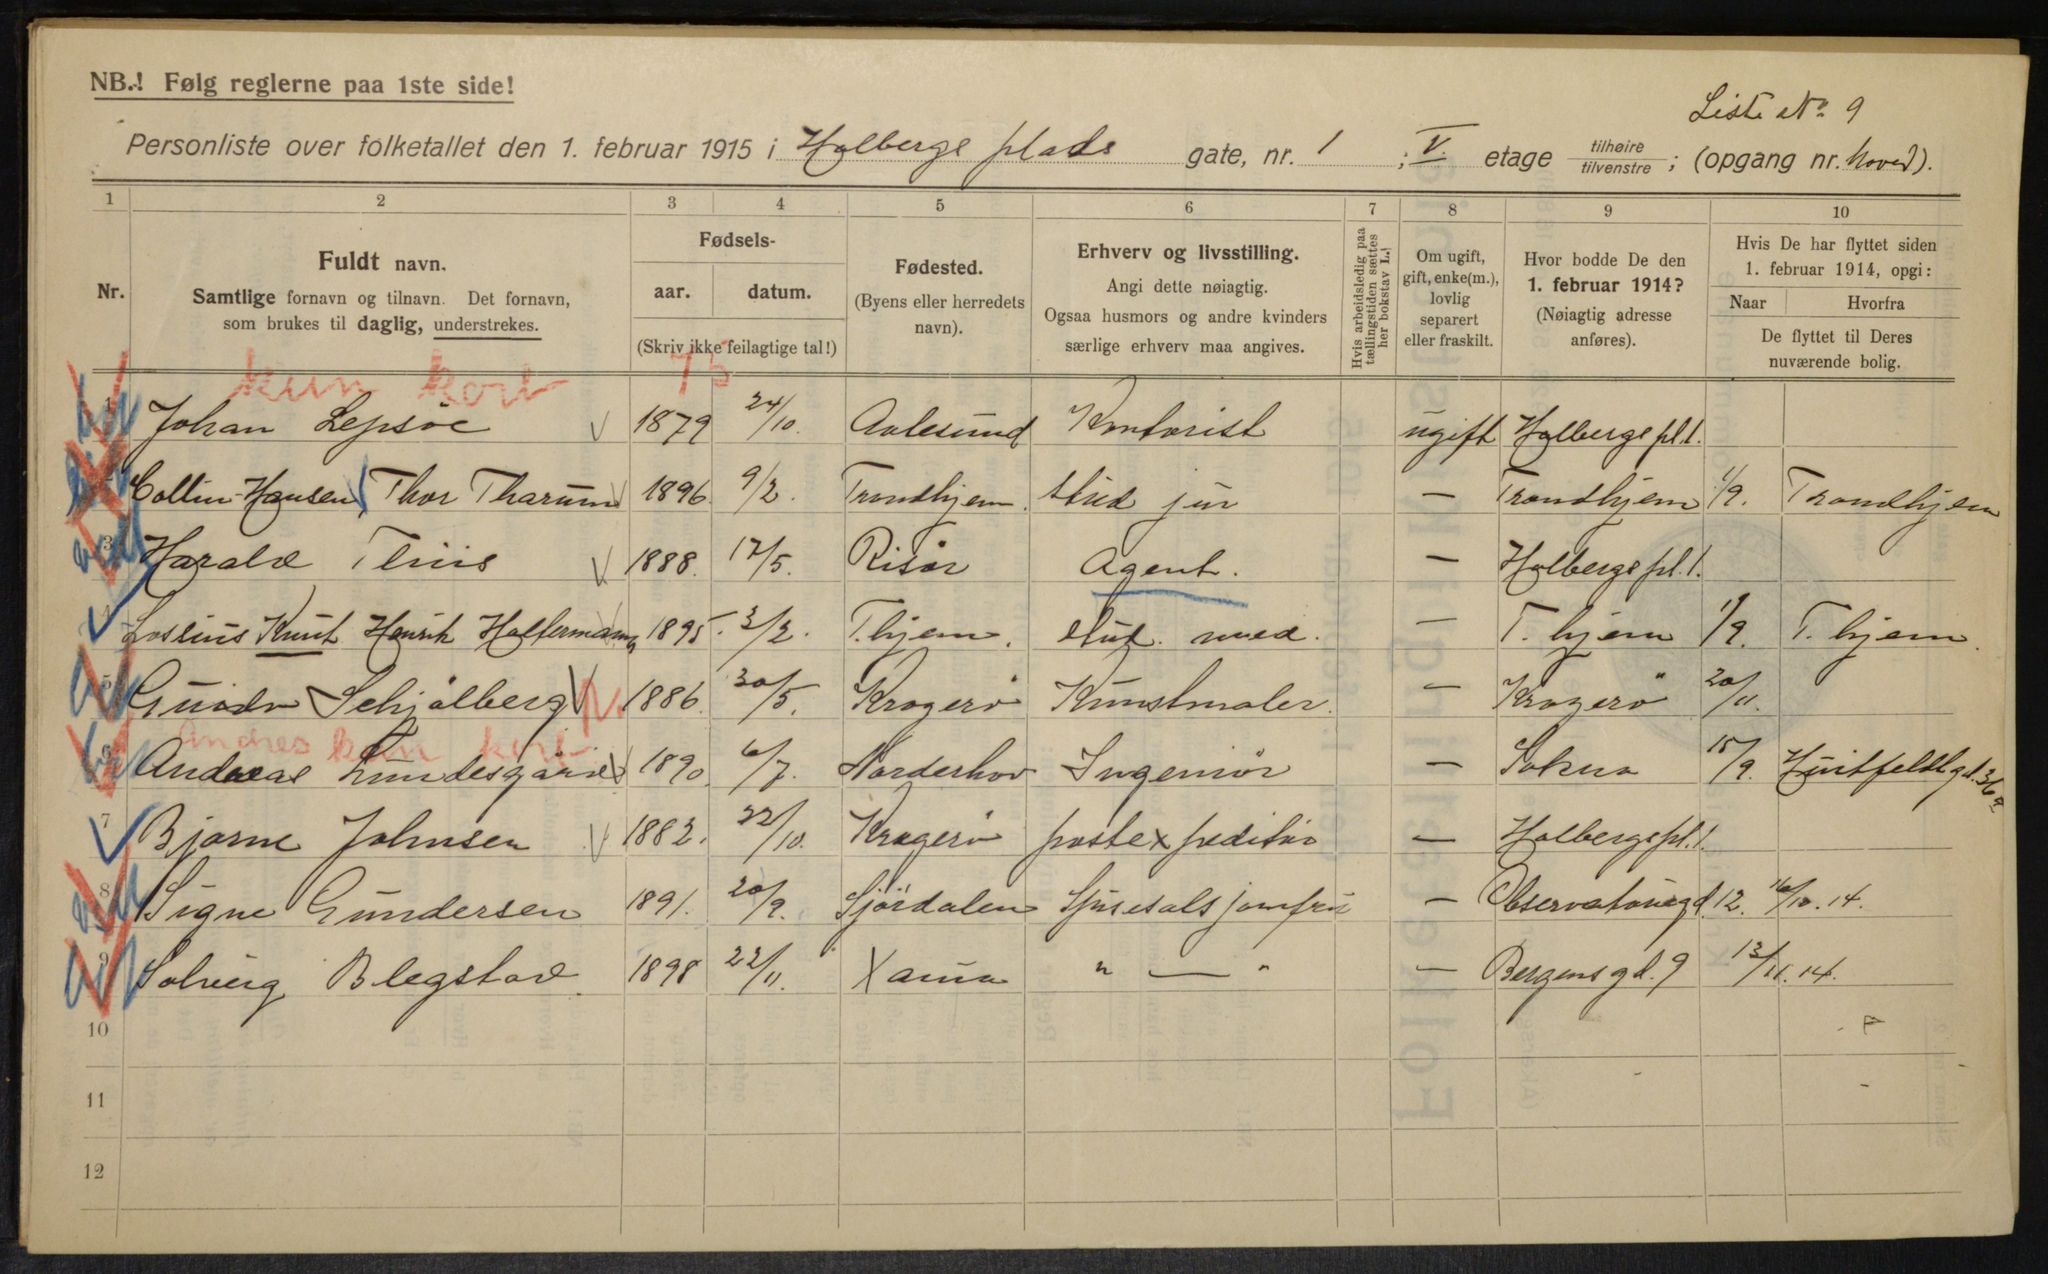 Liste No. 9
NB.! Følg reglerne paa 1ste side!
Personliste over folketallet den 1. februar 1915 i Holbergs plads gate, nr. 1; V. etage tilhøire tilvenstre; (opgang nr. Hoved).
1 2 3 4 5 6 7 8 9 10
Nr.
Fuldt navn.
Samtlige fornavn og tilnavn. Det fornavn,
som brukes til daglig, understrekes.
Fødsels-
aar. datum.
(Skriv ikke feilagtige tal!)
Fødested.
(Byens eller herredets
navn).
Erhverv og livsstilling.
Angi dette nøiagtig.
Ogsaa husmors og andre kvinders
særlige erhverv maa angives.
Hvis arbeidsledig paa
tællingstiden sættes
her bokstav L.
Om ugift,
gift, enke(m.),
lovlig
separert
eller fraskilt.
Hvor bodde De den
1. februar 1914?
(Nøiagtig adresse
anføres).
Hvis De har flyttet siden
1. februar 1914, opgi:
Naar Hvorfra
De flyttet til Deres
nuværende bolig.
kun kort 75
1 Johan Lepsöe 1879 24/10. Aalesund Kontorist ugift Holbergs pl. 1.
2 Collin-Hansen, Thor Tharum 1896. 9/2. Trondhjem. stud jur — Trondhjem 1/9. Trondhjem
3 Harald Thiis 1888. 17/5. Risör Agent. — Holbergs pl. 1.
4 Lossius Knut Henrik Holtermann 1895. 3/2. T.hjem. stud. med. — T. hjem 1/9. T. hjem.
5 Guido Schjølberg 1886. 30/5. Kragerø Kunstmaler. — Kragerø 20/11.
Andres kun kort
6 Andreas Lundesgaard 1890. 6/7. Norderhov Ingeniör — Sokna 15/9. Huitfeldtgd. 36a
7 Bjarne Johnsen 1882. 22/10. Kragerø postexpeditör — Holbergs pl. 1.
8 Signe Gundersen 1891. 20/9. Sjördalen Spisesalsjomfru — Observatoriegd. 12. 16/10. 14.
9 Solveig Blegstad 1898 22/11. " — " — Bergensgd. 9 13/11. 14.
10
11
12